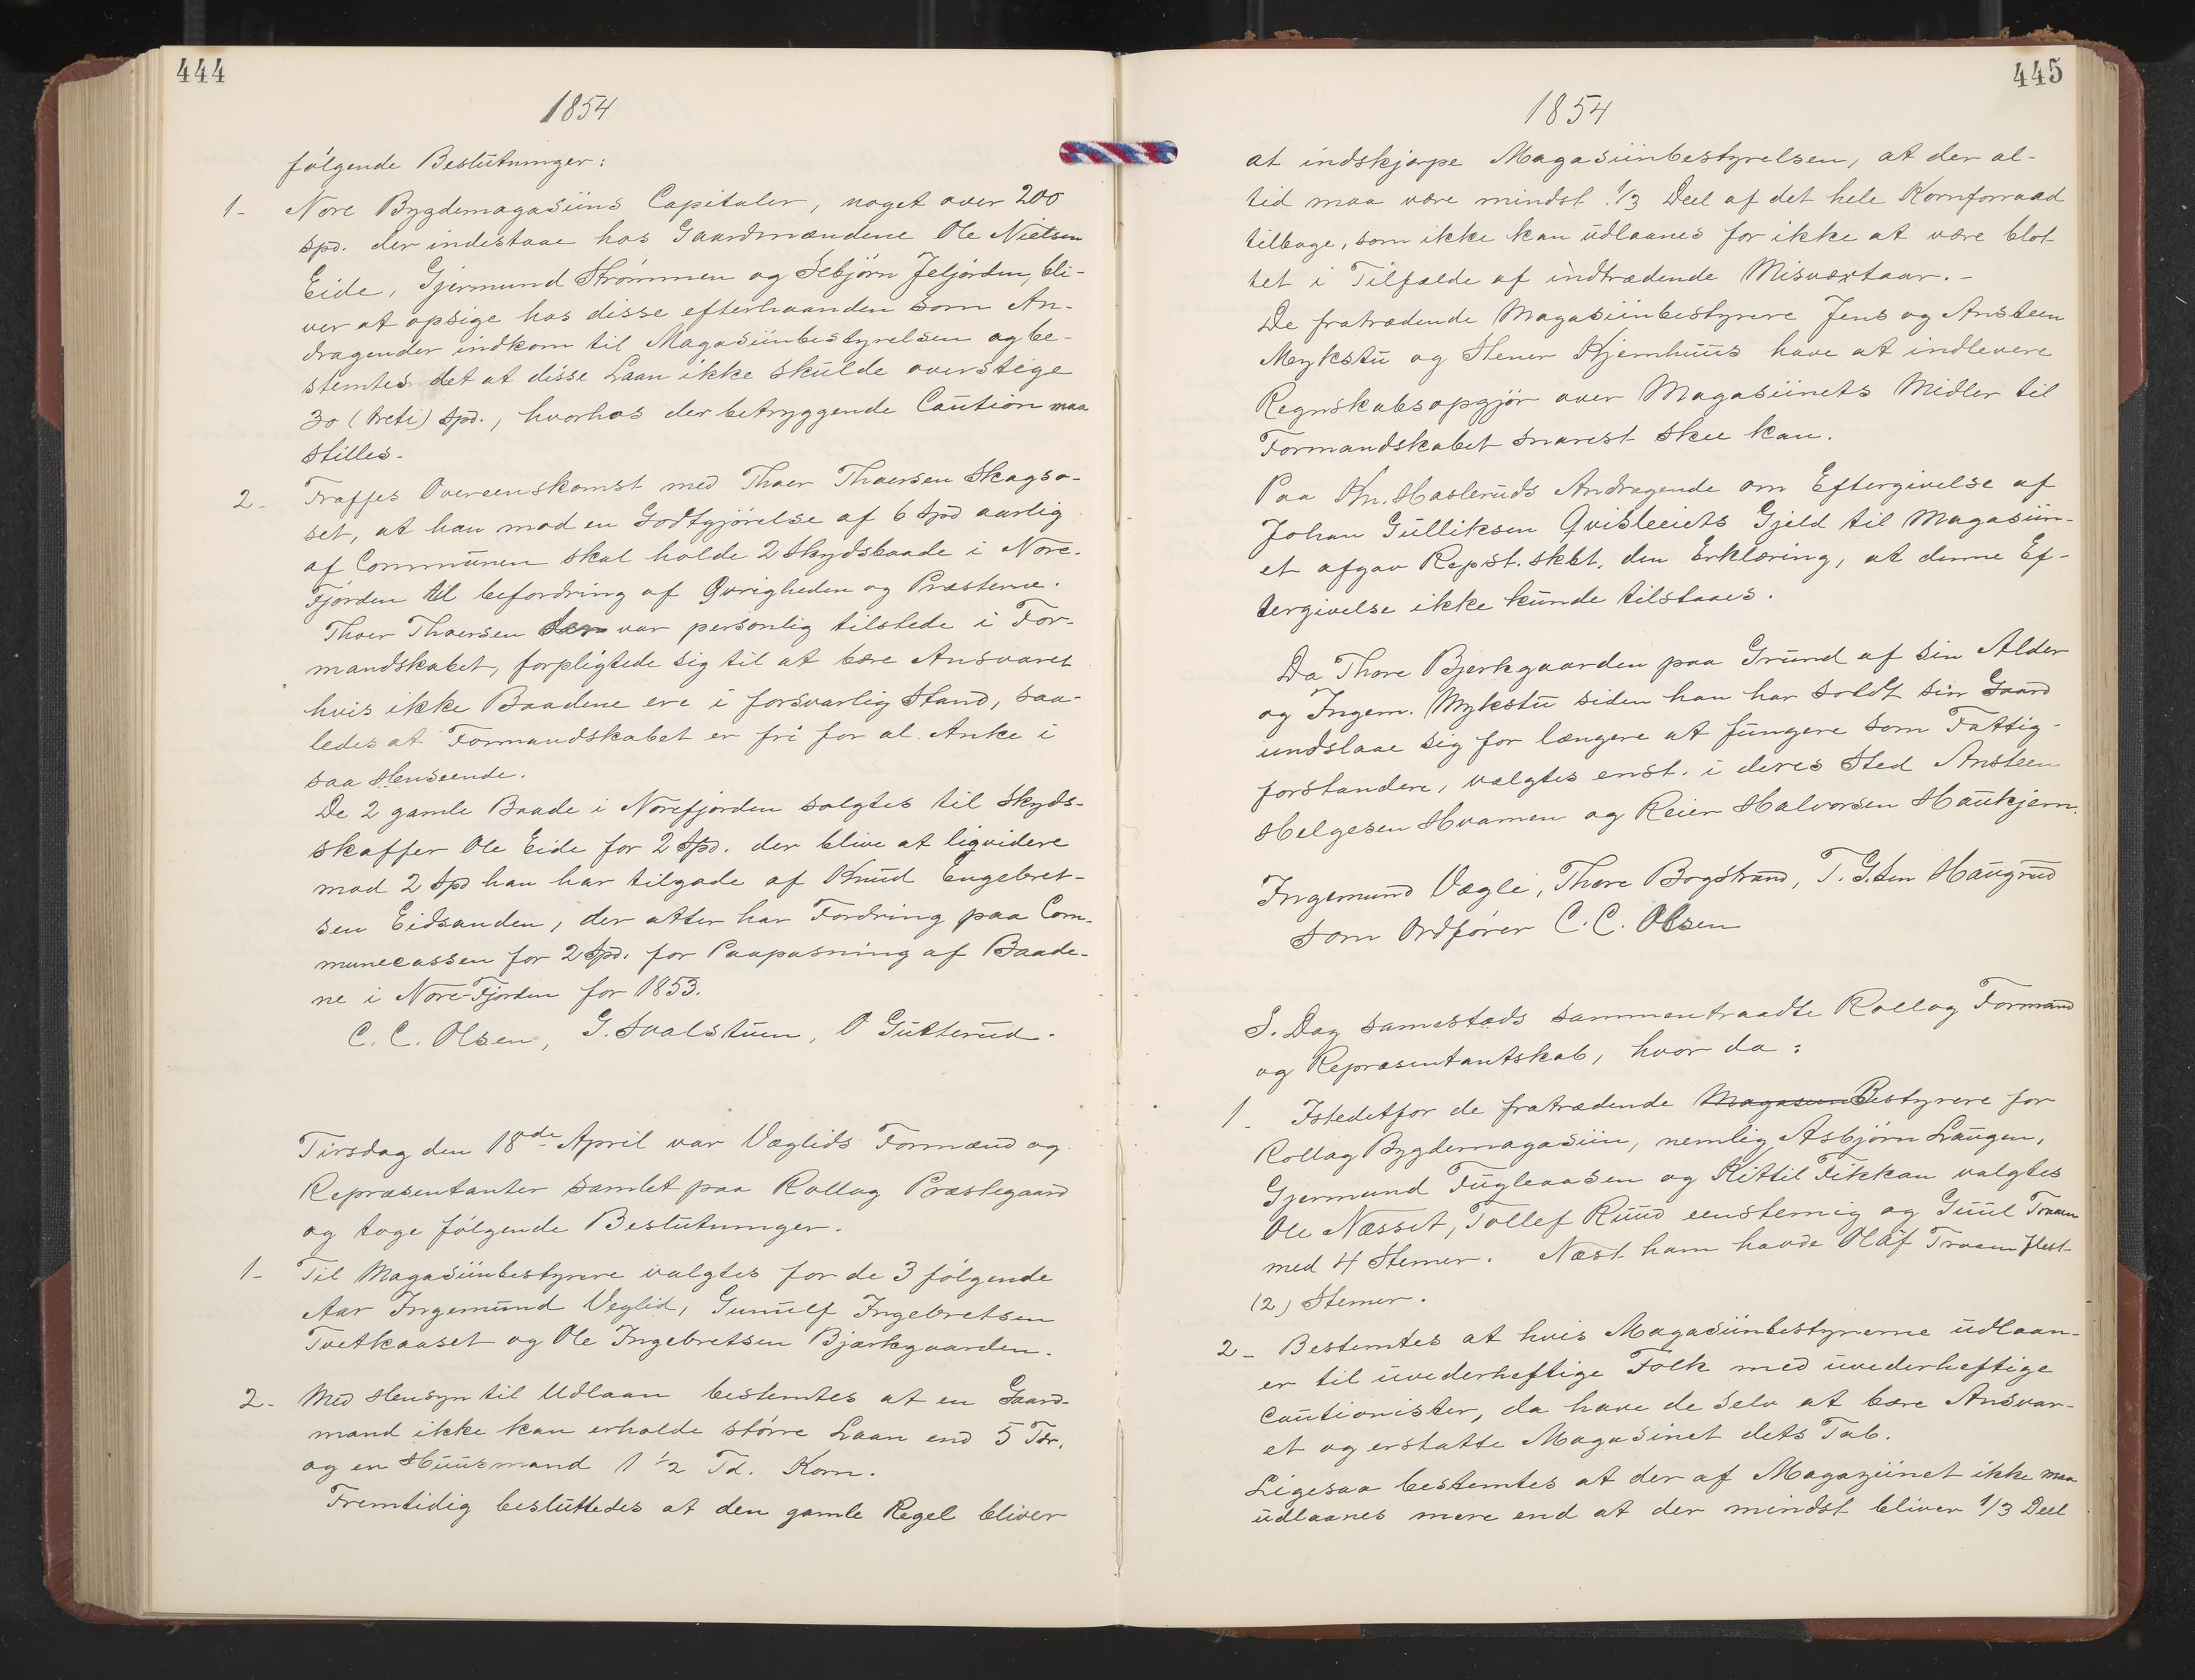 444
1854
følgende Beslutninger:
1- Nore Bygdemagasiins Capitaler, noget over 200
spd. der indestaae hos Gaardmændene Ole Nielsen
Eide, Gjermund Strømmen og Sebjørn Jeljorden, bli-
ver at opsige hos disse efterhaanden som An-
dragender indkom til Magasiinbestyrelsen og be-
stemtes det at disse Laan ikke skulde overstige
30 (treti) spd., hvorhos der betryggende Caution maa
stilles.
2- Traffes Overeenskomst med Thoer Thoersen Skagso-
set, at han mod en Godtgjørelse af 6 Spd aarlig
af Communen skal holde 2 Skydsbaade i Nore-
Fjorden til befordring af Øvrigheden og Præsterne.
Thoer Thoersen der var personlig tilstede i For-
mandskabet, forpligtede sig til at bære Ansvaret
hvis ikke Baadene ere i forsvarlig Stand, saa-
ledes at Formandskabet er fri for al Anke i
saa Henseende.
De 2 gamle Baade i Norefjorden solgtes til Skyds-
skaffer Ole Eide for 2 Spd. der blive at liqvidere
mod 2 Spd han har tilgode af Knud Engebret-
sen Eidsanden, der atter har Fordring paa Com-
munecassen for 2 Spd. for Paapasning af Baade-
ne i Nore-Fjorden for 1853.
C. C. Olsen, G. Svalstuen, O Gutterud.
Tirsdag den 18de April var Væglids Formænd og
Repræsentanter samlet paa Rollag Præstegaard
og toge følgende Beslutninger.
1- Til Magasiinbestyrere valgtes for de 3 følgende
Aar Ingemund Veglid, Gunulf Ingebretsen
Tvetkaaset og Ole Ingebretsen Bjørkgaarden.
2- Med Hensyn til Udlaan bestemtes at en Gaard-
mand ikke kan erholde større Laan end 5 Tdr.
og en Huusmand 1 1/2 Td. Korn.
Fremtidig besluttedes at den gamle Regel bliver
445
1854
at indskjærpe Magasiinbestyrelsen, at der al-
tid maa være mindst 1/3 Deel af det hele Kornforraad
tilbage, som ikke kan udlaanes for ikke at være blot-
tet i Tilfælde af indtrædende Misvæxtaar.-
De fratrædende Magasiinbestyrere Jens og Ansteen
Mykstu og Stener Kjemhuus have at indlevere
Regnskabsopgjør over Magasiinets Midler til
Formandskabet snarest skee kan.
Paa Kn. Hasleruds Andragende om Eftergivelse af
Johan Gulliksen Qvisleeiets Gjeld til Magasiin-
et afgav Repst. skbt. den Erklæring, at denne Ef-
tergivelse ikke kunde tilstaaes.
Da Thore Bjerkgaarden paa Grund af sin Alder
og Ingem. Mykstu siden han har soldt sin Gaard
undslaae sig for længere at fungere som Fattig-
forstandere, valgtes enst. i deres Sted Ansteen
Helgesen Hvamen og Reier Halvorsen Haukjern.
Ingemund Vægli, Thore Bogstrand, T. G.sen Haugrud
som Ordfører C. C. Olsen
S. Dag samesteds sammentraadte Rollag Formand
og Repræsentantskab, hvor da:
1- Istedetfor de fratrædende Magasiin Bestyrere for
Rollag Bygdemagasiin, nemlig Asbjørn Laugen,
Gjermund Fugleaasen og Kittil Fikkan valgtes
Ole Næsset, Tollef Ruud eenstemig og Guul Traaen
med 4 Stemer. Næst ham havde Olaf Traaen flest
(2) Stemer.
2- Bestemtes at hvis Magasiinbestyrerne udlaan-
er til uvederheftige Folk med uvederheftige
Cautionister, da have de selv at bære Ansvar-
et og erstatte Magasinet dets Tab.
Ligesaa bestemtes at der af Magaziinet ikke maa
udlaanes mere end at der mindst bliver 1/3 Deel